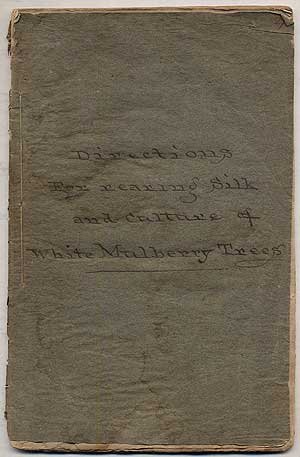 Directions
For rearing Silk
and Culture of
White Mulberry Trees